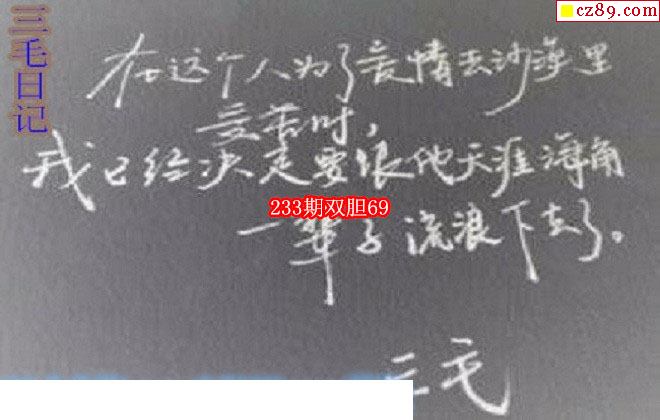 cz89.com
三毛日记
在这个人为了爱情去沙漠里
受苦时,
我已经决定要跟他天涯海角
233期双胆69
一辈子流浪下去了。
三毛